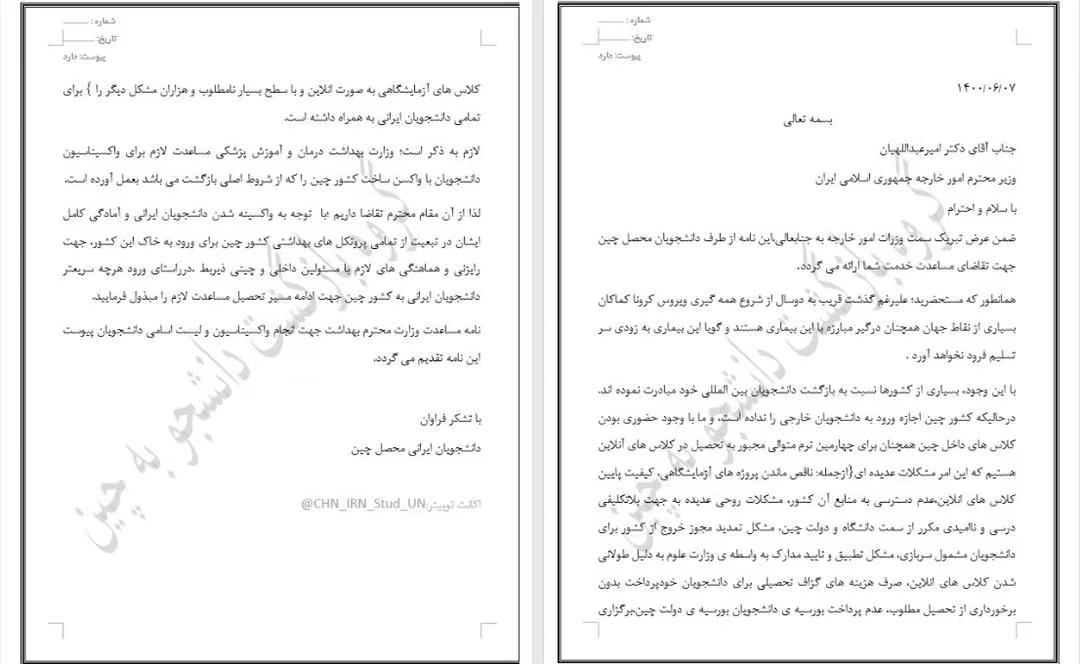 شماره :
تاریخ:
پیوست: دارد
۱۴۰۰/۰۶/۰۷
بسمه تعالی
جناب آقای دکتر امیرعبداللهیان
وزیر محترم امور خارجه جمهوری اسلامی ایران
با سلام و احترام
ضمن عرض تبریک سمت وزرات امور خارجه به جنابعالی،این نامه از طرف دانشجویان محصل چین
جهت تقاضای مساعدت خدمت شما ارائه می گردد.
همانطور که مستحضرید؛ علیرغم گذشت قریب به دوسال از شروع همه گیری ویروس کرونا کماکان
بسیاری از نقاط جهان همچنان درگیر مبارزه با این بیماری هستند و گویا این بیماری به زودی سر
تسلیم فرود نخواهد آورد .
با این وجود، بسیاری از کشورها نسبت به بازگشت دانشجویان بین المللی خود مبادرت نموده اند.
درحالیکه کشور چین اجازه ورود به دانشجویان خارجی را نداده است، و ما با وجود حضوری بودن
کلاس های داخل چین همچنان برای چهارمین ترم متوالی مجبور به تحصیل در کلاس های آنلاین
هستیم که این امر مشکلات عدیده ای{ازجمله: ناقص ماندن پروژه های آزمایشگاهی، کیفیت پایین
کلاس های انلاین،عدم دسترسی به منابع آن کشور، مشکلات روحی عدیده به جهت بلاتکلیفی
درسی و ناامیدی مکرر از سمت دانشگاه و دولت چین، مشکل تمدید مجوز خروج از کشور برای
دانشجویان مشمول سربازی، مشکل تطبیق و تایید مدارک به واسطه ی وزارت علوم به دلیل طولانی
شدن کلاس های انلاین، صرف هزینه های گزاف تحصیلی برای دانشجویان خودپرداخت بدون
برخورداری از تحصیل مطلوب، عدم پرداخت بورسیه ی دانشجویان بورسیه ی دولت چین،برگزاری
گروه بازگشت دانشجو به چین
شماره :
تاریخ:
پیوست: دارد
کلاس های آزمایشگاهی به صورت انلاین و با سطح بسیار نامطلوب و هزاران مشکل دیگر را } برای
تمامی دانشجویان ایرانی به همراه داشته است.
لازم به ذکر است؛ وزارت بهداشت درمان و آموزش پزشکی مساعدت لازم برای واکسیناسیون
دانشجویان با واکسن ساخت کشور چین را که از شروط اصلی بازگشت می باشد بعمل آورده است.
لذا از آن مقام محترم تقاضا داریم ؛با توجه به واکسینه شدن دانشجویان ایرانی و آمادگی کامل
ایشان در تبعیت از تمامی پروتکل های بهداشتی کشور چین برای ورود به خاک این کشور، جهت
رایزنی و هماهنگی های لازم با مسئولین داخلی و چینی ذیربط ،درراستای ورود هرچه سریعتر
دانشجویان ایرانی به کشور چین جهت ادامه مسیر تحصیل مساعدت لازم را مبذول فرمایید.
نامه مساعدت وزارت محترم بهداشت جهت انجام واکسیناسیون و لیست اسامی دانشجویان پیوست
این نامه تقدیم می گردد.
با تشکر فراوان
دانشجویان ایرانی محصل چین
اکانت توییتر:CHN_IRN_Stud_UN@
گروه بازگشت دانشجو به چین